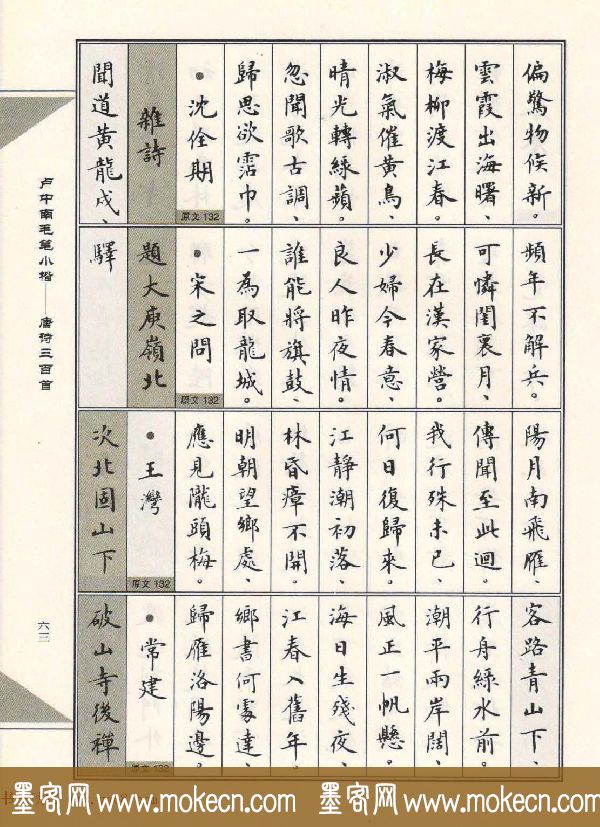 偏驚物候新。
雲霞出海曙、
梅柳渡江春。
淑氣催黃鳥、
晴光轉綠蘋。
忽聞歌古調、
歸思欲霑巾。
• 沈佺期
原文 132
雜詩
聞道黃龍戍、
頻年不解兵。
可憐閨裏月、
長在漢家營。
少婦今春意、
良人昨夜情。
誰能將旗鼓、
一為取龍城。
• 宋之問
原文 132
題大庾嶺北
驛
陽月南飛雁、
傳聞至此迴。
我行殊未已、
何日復歸來。
江靜潮初落、
林昏瘴不開。
明朝望鄉處、
應見隴頭梅。
• 王灣
原文 132
次北固山下
客路青山下、
行舟綠水前。
潮平兩岸闊、
風正一帆懸。
海日生殘夜、
江春入舊年。
鄉書何處達、
歸雁洛陽邊。
• 常建
原文 132
破山寺後禪
卢中南毛笔小楷——唐诗三百首
六三
墨客网 www.mokecn.com 墨客网 www.mokecn.com